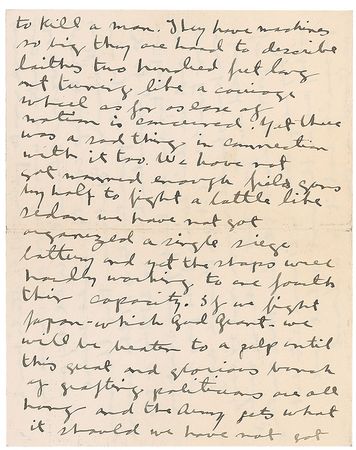 to kill a man. They have machines
so big they are hard to describe
laithes two hundred feet long
and turning like a carriage
wheel as far as ease of
motion is concerned. Yet there
was a sad thing in connection
with it too. We have not
got manned enough field guns
by half to fight a battle like
sedan we have not got
organized a single siege
battery and yet the shops were
hardly working to one fourth
their capacity. If we fight
Japan - which God grant - we
will be beaten to a pulp until
this great and glorious bunch
of grafting politicians are all
hung and the Army gets what
it should we have not got